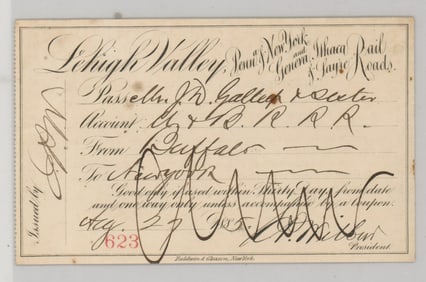 Lehigh Valley, Penna. & New York and Geneva, Ithaca & Sayre Rail Roads.
Pass Mr. J. D. Gallup & Sister
Account U & B. R. R. R.
From Buffalo
To New York
Good only if used within Thirty days from date
and one way only unless accompanied by a coupon.
Aug. 27 188
623
President.
Issued by
Baldwin & Gleason, New York.